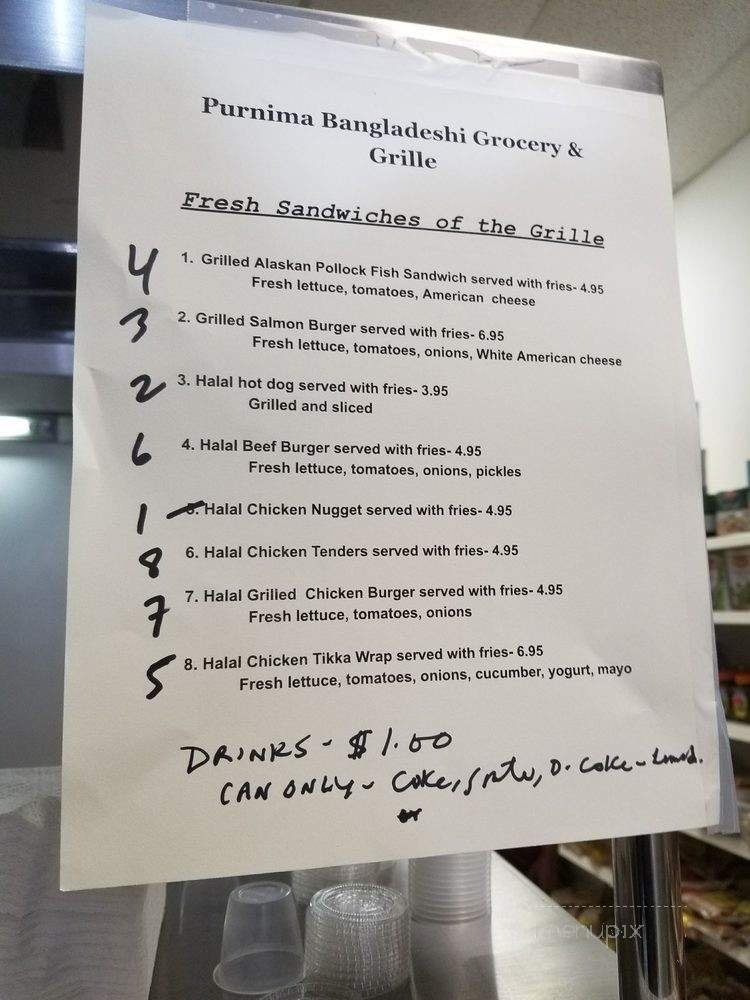 Purnima Bangladeshi Grocery &
Grille
Fresh Sandwiches of the Grille
4 1. Grilled Alaskan Pollock Fish Sandwich served with fries- 4.95
Fresh lettuce, tomatoes, American cheese
3 2. Grilled Salmon Burger served with fries- 6.95
Fresh lettuce, tomatoes, onions, White American cheese
2 3. Halal hot dog served with fries- 3.95
Grilled and sliced
6 4. Halal Beef Burger served with fries- 4.95
Fresh lettuce, tomatoes, onions, pickles
1 5. Halal Chicken Nugget served with fries- 4.95
8 6. Halal Chicken Tenders served with fries- 4.95
7 7. Halal Grilled Chicken Burger served with fries- 4.95
Fresh lettuce, tomatoes, onions
5 8. Halal Chicken Tikka Wrap served with fries- 6.95
Fresh lettuce, tomatoes, onions, cucumber, yogurt, mayo
DRINKS - $1.00
CAN ONLY - Coke, D. Coke -
menupix